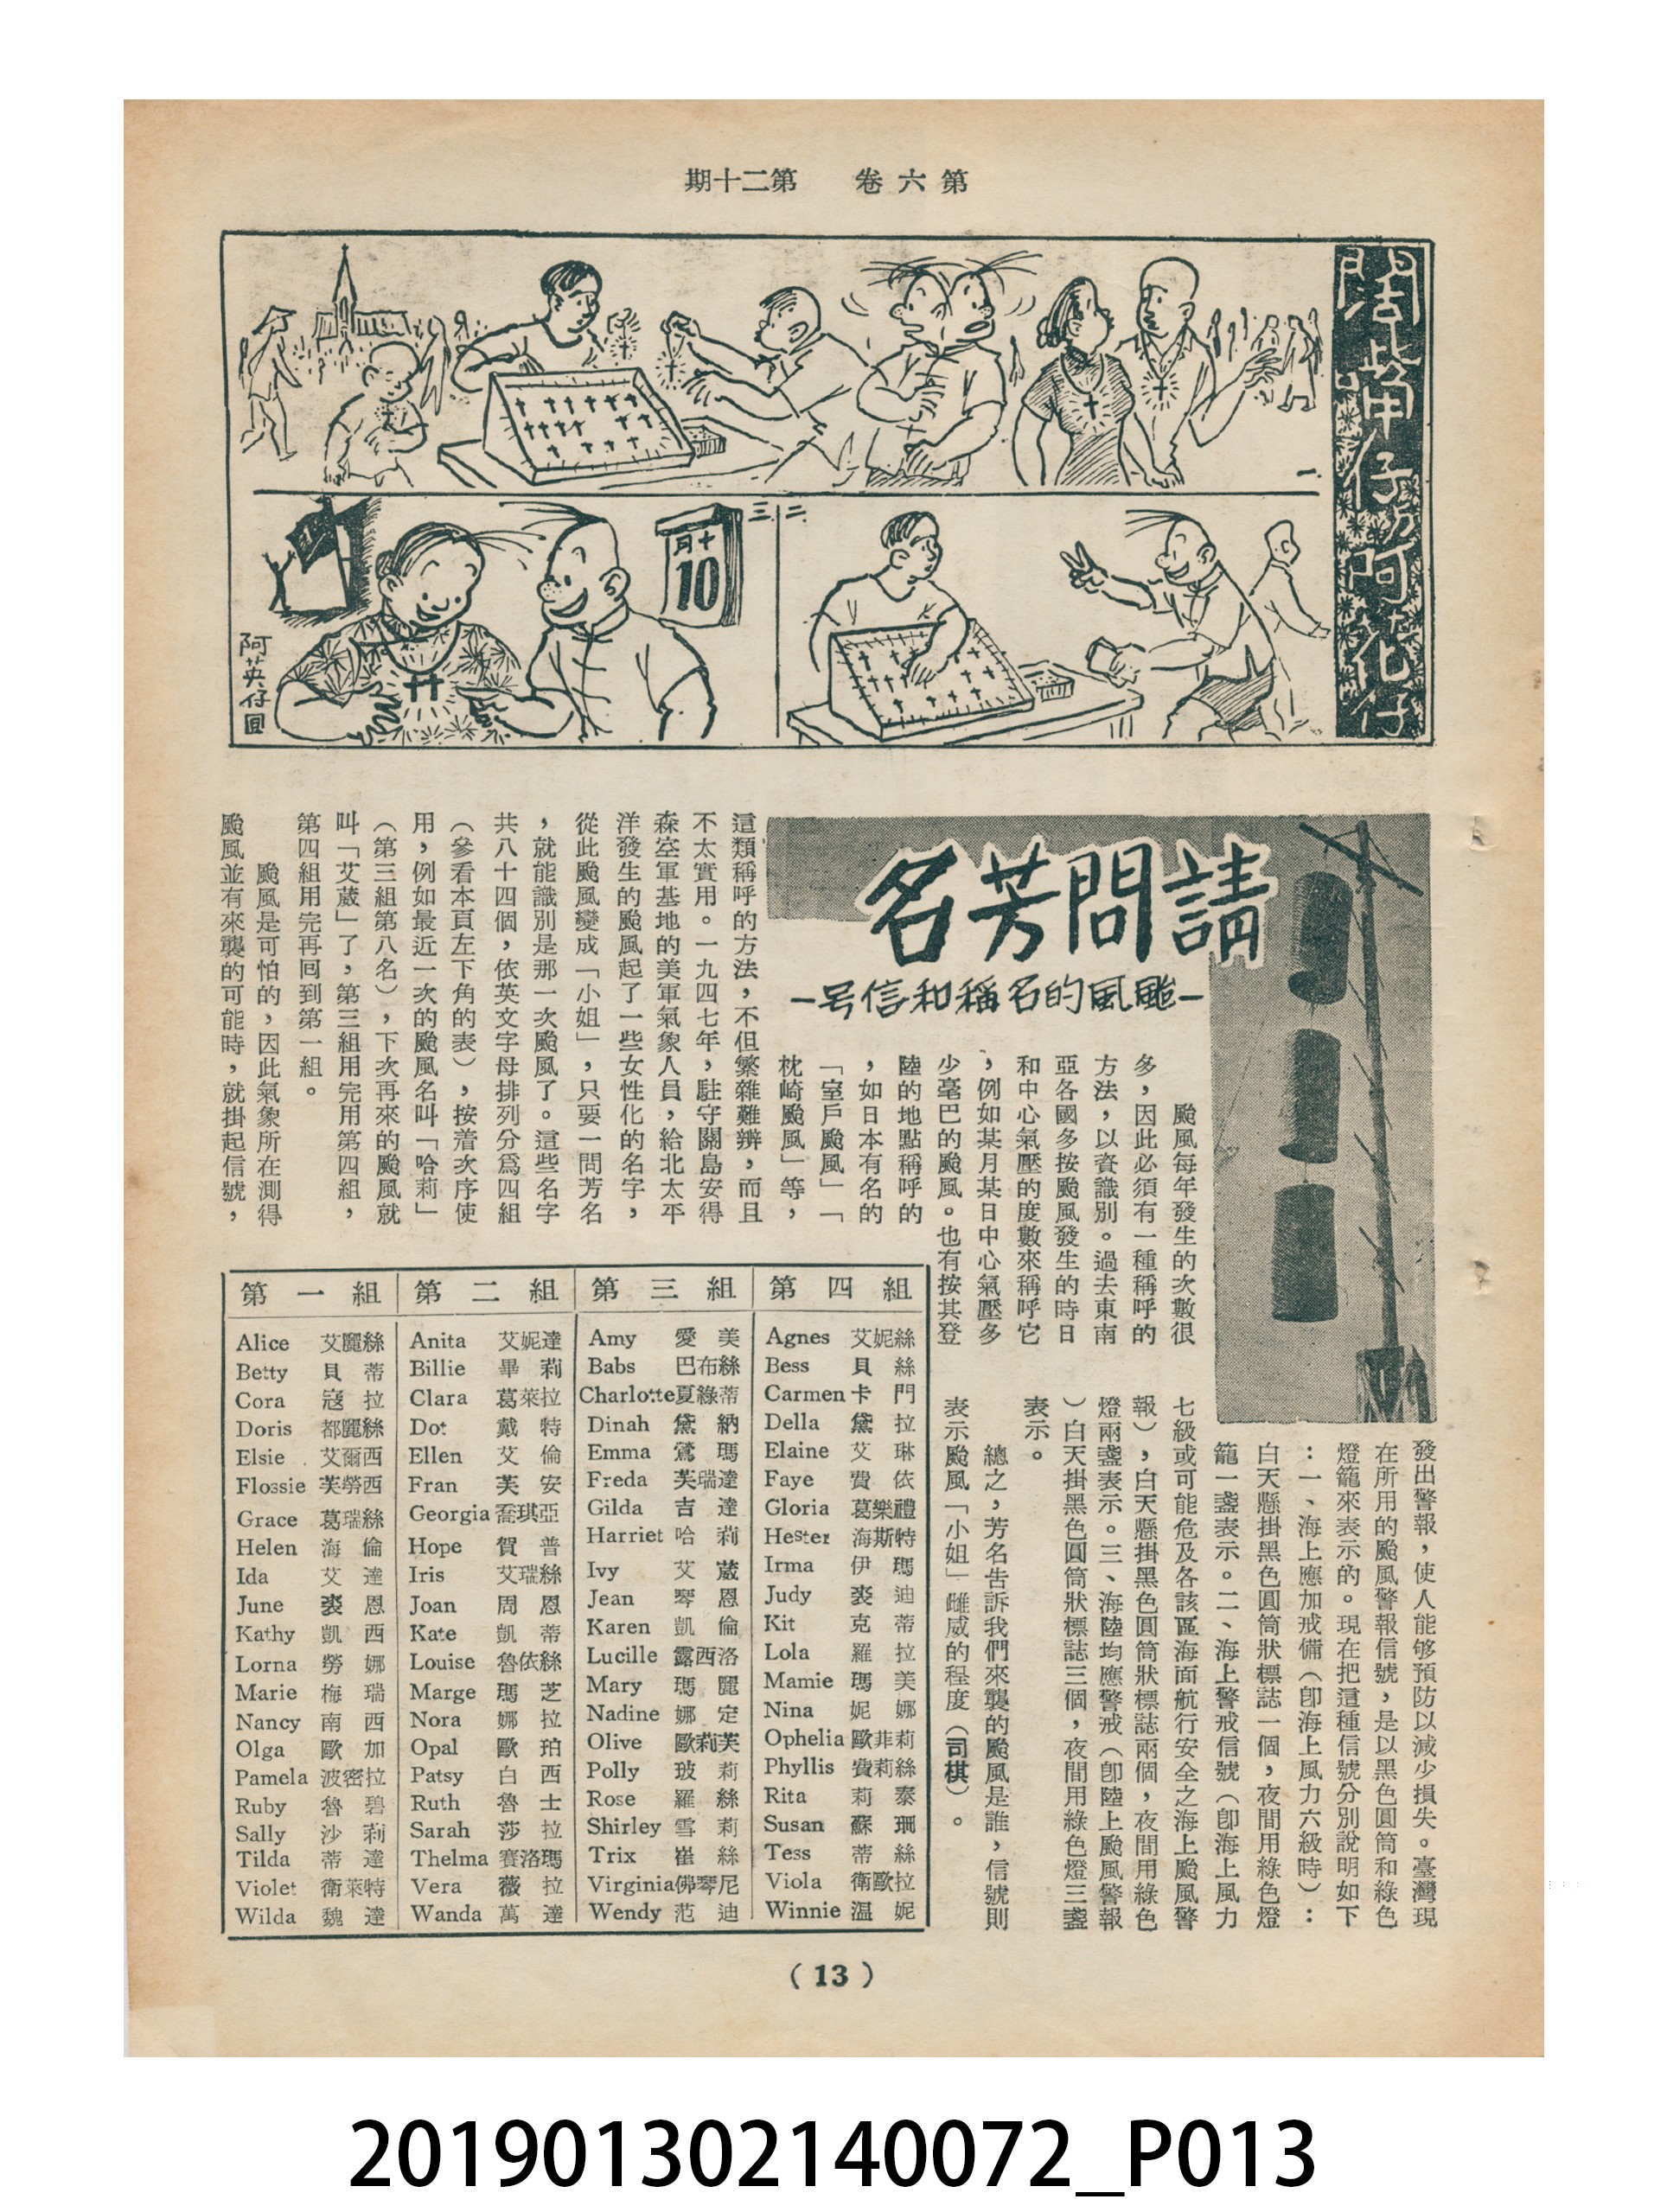 第六卷　第二十期
闊嘴仔與阿花仔
一
二
三
十月
10
阿英仔画
請問芳名
—颱風的名稱和信号—
颱風每年發生的次數很
多，因此必須有一種稱呼的
方法，以資識別。過去東南
亞各國多按颱風發生的時日
和中心氣壓的度數來稱呼它
，例如某月某日中心氣壓多
少毫巴的颱風。也有按其登
陸的地點稱呼的
，如日本有名的
「室戶颱風」「
枕崎颱風」等，
這類稱呼的方法，不但繁雜難辨，而且
不太實用。一九四七年，駐守關島安得
森空軍基地的美軍氣象人員，給北太平
洋發生的颱風起了一些女性化的名字，
從此颱風變成「小姐」，只要一問芳名
，就能識別是那一次颱風了。這些名字
共八十四個，依英文字母排列分爲四組
（參看本頁左下角的表），按着次序使
用，例如最近一次的颱風名叫「哈莉」
（第三組第八名），下次再來的颱風就
叫「艾葳」了，第三組用完用第四組，
第四組用完再回到第一組。
颱風是可怕的，因此氣象所在測得
颱風並有來襲的可能時，就掛起信號，
發出警報，使人能够預防以減少損失。臺灣現
在所用的颱風警報信號，是以黑色圓筒和綠色
燈籠來表示的。現在把這種信號分別說明如下
：一、海上應加戒備（卽海上風力六級時）：
白天懸掛黑色圓筒狀標誌一個，夜間用綠色燈
籠一盞表示。二、海上警戒信號（卽海上風力
七級或可能危及各該區海面航行安全之海上颱風警
報），白天懸掛黑色圓筒狀標誌兩個，夜間用綠色
燈兩盞表示。三、海陸均應警戒（卽陸上颱風警報
）白天掛黑色圓筒狀標誌三個，夜間用綠色燈三盞
表示。
總之，芳名告訴我們來襲的颱風是誰，信號則
表示颱風「小姐」雌威的程度（司棋）。
第一組　第二組　第三組　第四組
Alice 艾麗絲　Anita 艾妮達　Amy 愛美　Agnes 艾妮絲
Betty 貝蒂　Billie 畢莉　Babs 巴布絲　Bess 貝絲
Cora 寇拉　Clara 葛萊拉　Charlotte 夏綠蒂　Carmen 卡門
Doris 都麗絲　Dot 戴特　Dinah 黛納　Della 黛拉
Elsie 艾爾西　Ellen 艾倫　Emma 鶯瑪　Elaine 艾琳
Flossie 芙勞西　Fran 芙安　Freda 芙瑞達　Faye 費依
Grace 葛瑞絲　Georgia 喬琪亞　Gilda 吉達　Gloria 葛樂禮
Helen 海倫　Hope 賀普　Harriet 哈莉　Hester 海斯特
Ida 艾達　Iris 艾瑞絲　Ivy 艾葳　Irma 伊瑪
June 裘恩　Joan 周恩　Jean 琴恩　Judy 裘迪
Kathy 凱西　Kate 凱蒂　Karen 凱倫　Kit 克蒂
Lorna 勞娜　Louise 魯依絲　Lucille 露西洛　Lola 羅拉
Marie 梅瑞　Marge 瑪芝　Mary 瑪麗　Mamie 瑪美
Nancy 南西　Nora 娜拉　Nadine 娜定　Nina 妮娜
Olga 歐加　Opal 歐珀　Olive 歐莉芙　Ophelia 歐菲莉
Pamela 波密拉　Patsy 白西　Polly 玻莉　Phyllis 費莉絲
Ruby 魯碧　Ruth 魯士　Rose 羅絲　Rita 莉泰
Sally 沙莉　Sarah 莎拉　Shirley 雪莉　Susan 蘇珊
Tilda 蒂達　Thelma 賽洛瑪　Trix 崔絲　Tess 蒂絲
Violet 衛萊特　Vera 薇拉　Virginia 佛琴尼　Viola 衛歐拉
Wilda 魏達　Wanda 萬達　Wendy 范迪　Winnie 溫妮
（13）
201901302140072_P013